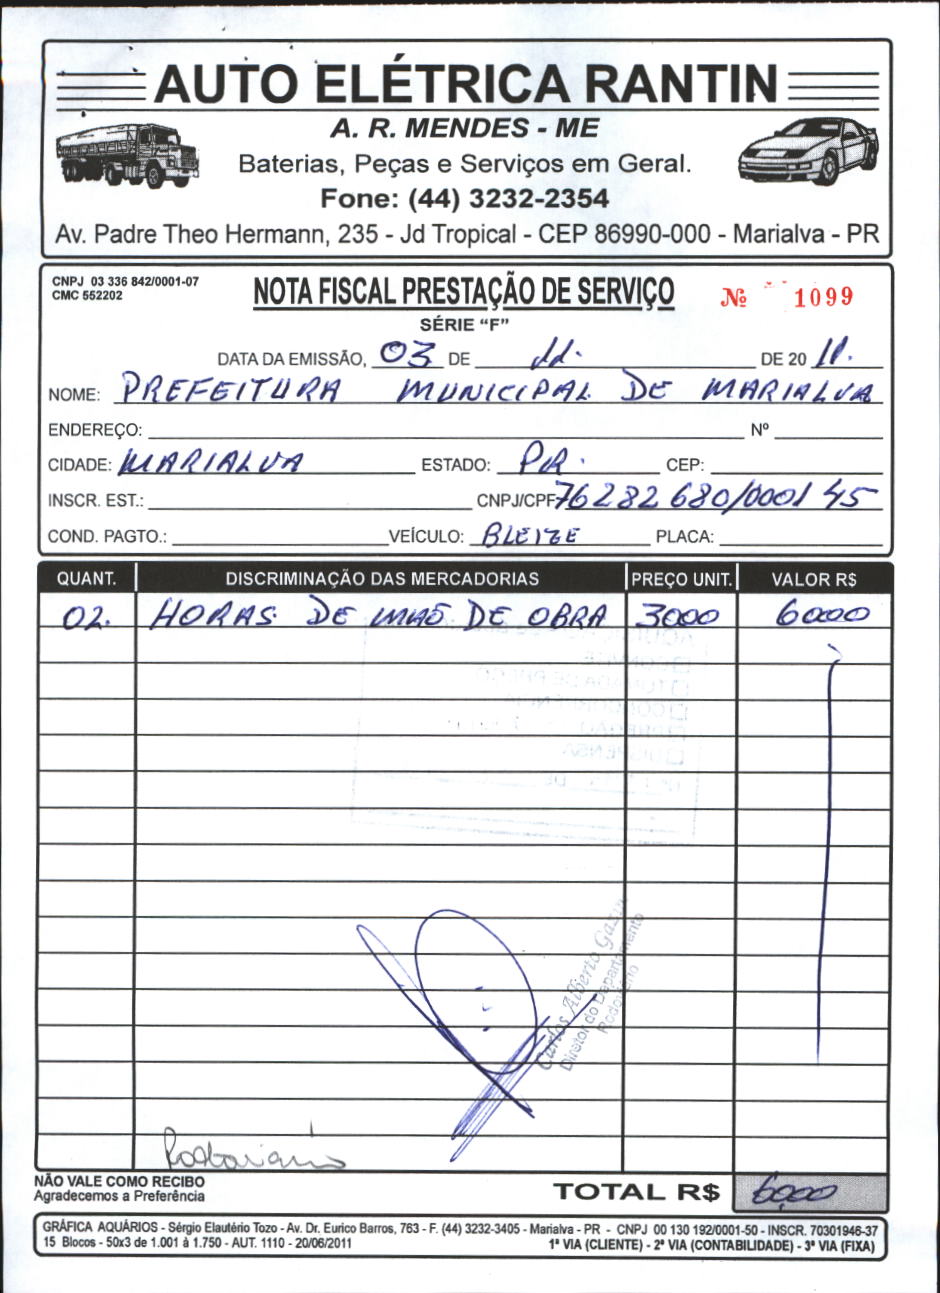 AUTO ELÉTRICA RANTIN
A. R. MENDES - ME
Baterias, Peças e Serviços em Geral.
Fone: (44) 3232-2354
Av. Padre Theo Hermann, 235 - Jd Tropical - CEP 86990-000 - Marialva - PR
CNPJ 03 336 842/0001-07
CMC 552202
NOTA FISCAL PRESTAÇÃO DE SERVIÇO
Nº 1099
SÉRIE "F"
DATA DA EMISSÃO, 03 DE 11. DE 20 11.
NOME: PREFEITURA MUNICIPAL DE MARIALVA
ENDEREÇO: Nº
CIDADE: MARIALVA ESTADO: PR. CEP:
INSCR. EST.: CNPJ/CPF 76282680/0001 45
COND. PAGTO.: VEÍCULO: BLEIZE PLACA:
QUANT. DISCRIMINAÇÃO DAS MERCADORIAS PREÇO UNIT. VALOR R$
02. HORAS DE MÃO DE OBRA 3000 6000
Carlos Alberto Gazin
Diretor do Departamento
Rodoviário
Rodoviário
NÃO VALE COMO RECIBO
Agradecemos a Preferência
TOTAL R$ 60,00
GRÁFICA AQUÁRIOS - Sérgio Elautério Tozo - Av. Dr. Eurico Barros, 763 - F. (44) 3232-3405 - Marialva - PR - CNPJ 00 130 192/0001-50 - INSCR. 70301946-37
15 Blocos - 50x3 de 1.001 à 1.750 - AUT. 1110 - 20/06/2011 1ª VIA (CLIENTE) - 2ª VIA (CONTABILIDADE) - 3ª VIA (FIXA)